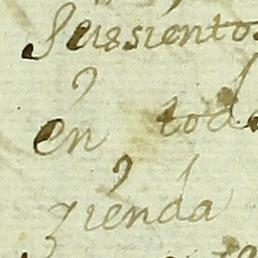 Seissiento
en tod
zienda